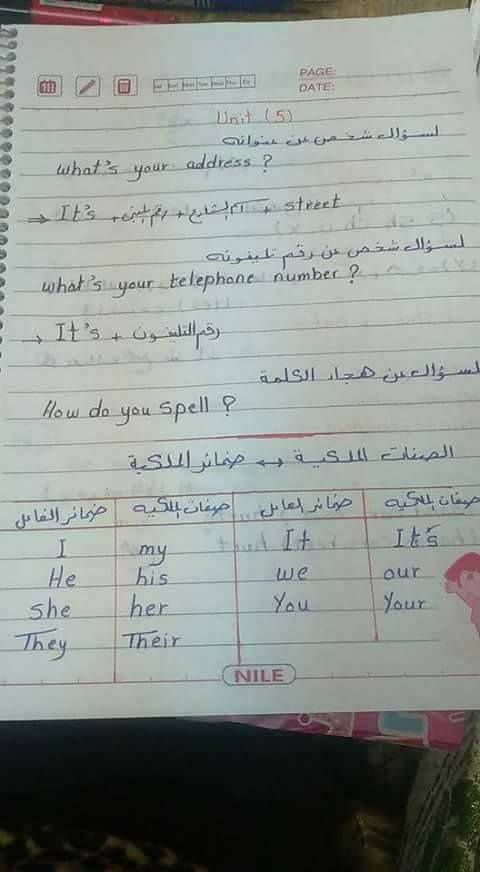 PAGE:
DATE:
Unit (5)
لسؤال شخص عن عنوانه
What's your address?
⇒ It's + رقم المبنى + اسم الشارع + street
لسؤال شخص عن رقم تليفونه
What's your telephone number?
→ It's + رقم التليفون
لسؤال عن هجاء الكلمة
How do you spell?
الصفات الملكية ↔ ضمائر الملكية
ضمائر الفاعل صفات الملكية ضمائر الفاعل صفات الملكيه
I my It It's
He his we our
she her You Your
They Their
NILE